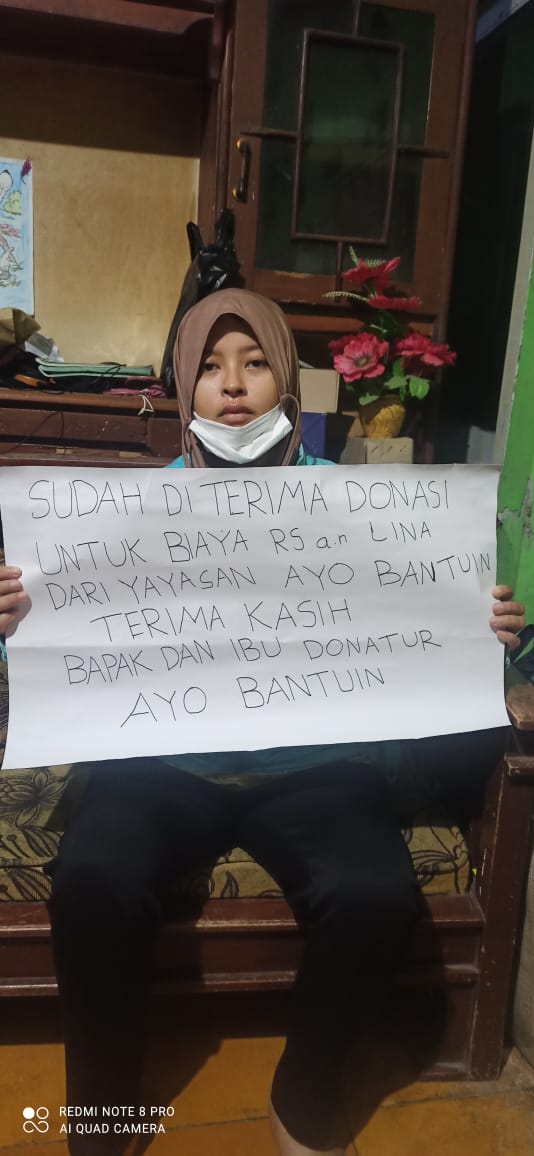 SUDAH DI TERIMA DONASI
UNTUK BIAYA RS a.n LINA
DARI YAYASAN AYO BANTUIN
TERIMA KASIH
BAPAK DAN IBU DONATUR
AYO BANTUIN
REDMI NOTE 8 PRO
AI QUAD CAMERA